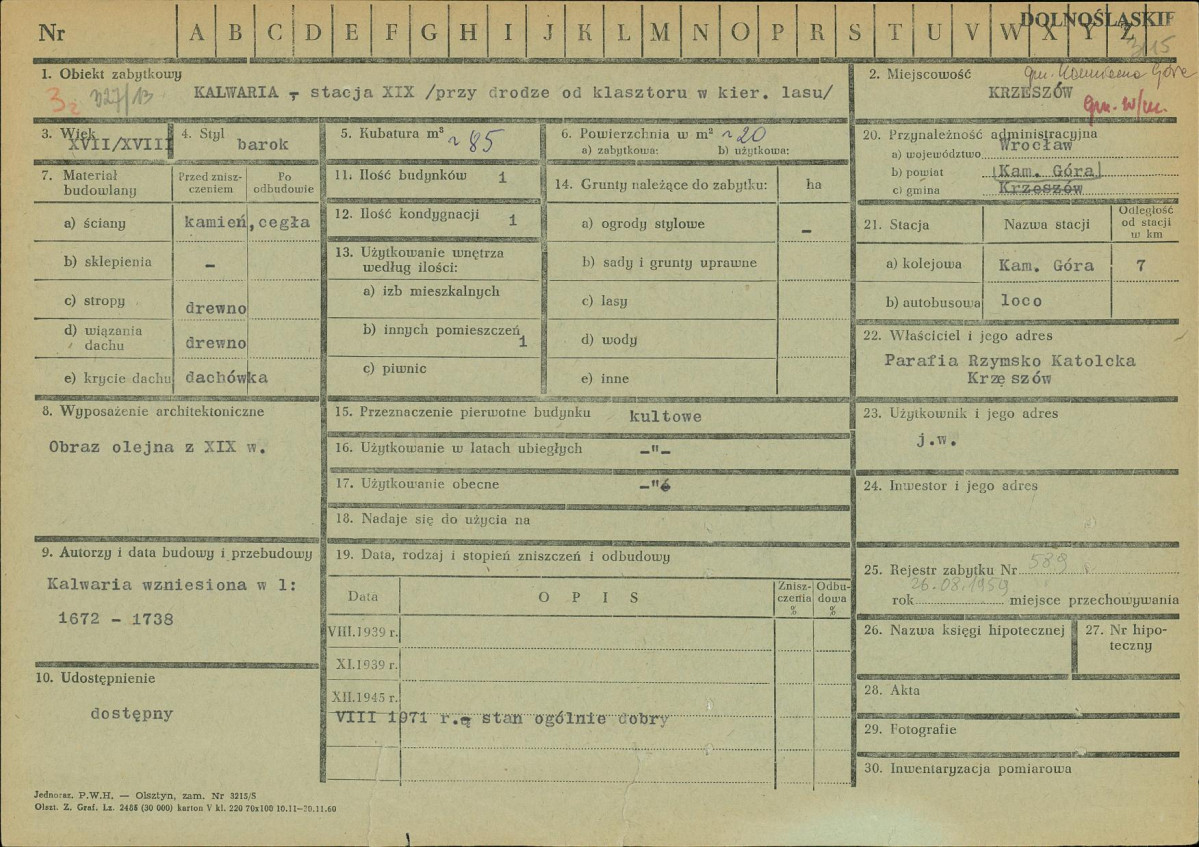 DOLNOŚLĄSKIE
Nr A B C D E F G H I J K L M N O P R S T U V W X Y Z
3115
1. Obiekt zabytkowy
32 327/13
KALWARIA - stacja XIX /przy drodze od klasztoru w kier. lasu/
2. Miejscowość
gm. Kamienna Góra
KRZESZÓW
gm. w/m.
3. Wiek
XVII/XVIII
4. Styl
barok
5. Kubatura m³ ~ 85
6. Powierzchnia w m² ~ 20
a) zabytkowa: b) użytkowa:
7. Materiał budowlany
Przed zniszczeniem
Po odbudowie
a) ściany kamień, cegła
b) sklepienia -
c) stropy drewno
d) wiązania dachu drewno
e) krycie dachu dachówka
8. Wyposażenie architektoniczne
Obraz olejna z XIX w.
9. Autorzy i data budowy i przebudowy
Kalwaria wzniesiona w l:
1672 - 1738
10. Udostępnienie
dostępny
11. Ilość budynków 1
12. Ilość kondygnacji 1
13. Użytkowanie wnętrza
według ilości:
a) izb mieszkalnych
b) innych pomieszczeń 1
c) piwnic
14. Grunty należące do zabytku: ha
a) ogrody stylowe -
b) sady i grunty uprawne
c) lasy
d) wody
e) inne
15. Przeznaczenie pierwotne budynku kultowe
16. Użytkowanie w latach ubiegłych -"-
17. Użytkowanie obecne -"-
18. Nadaje się do użycia na
19. Data, rodzaj i stopień zniszczeń i odbudowy
Data OPIS Zniszczenia % Odbudowa %
VIII.1939 r.
XI.1939 r.
XII.1945 r.
VIII 1971 r. stan ogólnie dobry
20. Przynależność administracyjna
a) województwo Wrocław
b) powiat Kam. Góra
c) gmina Krzeszów
21. Stacja Nazwa stacji Odległość od stacji w km
a) kolejowa Kam. Góra 7
b) autobusowa loco
22. Właściciel i jego adres
Parafia Rzymsko Katolcka
Krzeszów
23. Użytkownik i jego adres
j.w.
24. Inwestor i jego adres
25. Rejestr zabytku Nr 589
rok 26.08.1959 miejsce przechowywania
26. Nazwa księgi hipotecznej
27. Nr hipoteczny
28. Akta
29. Fotografie
30. Inwentaryzacja pomiarowa
Jednoraz. P.W.H. — Olsztyn, zam. Nr 3215/S
Olszt. Z. Graf. Lz. 2486 (30 000) karton V kl. 220 70x100 10.11—20.11.60